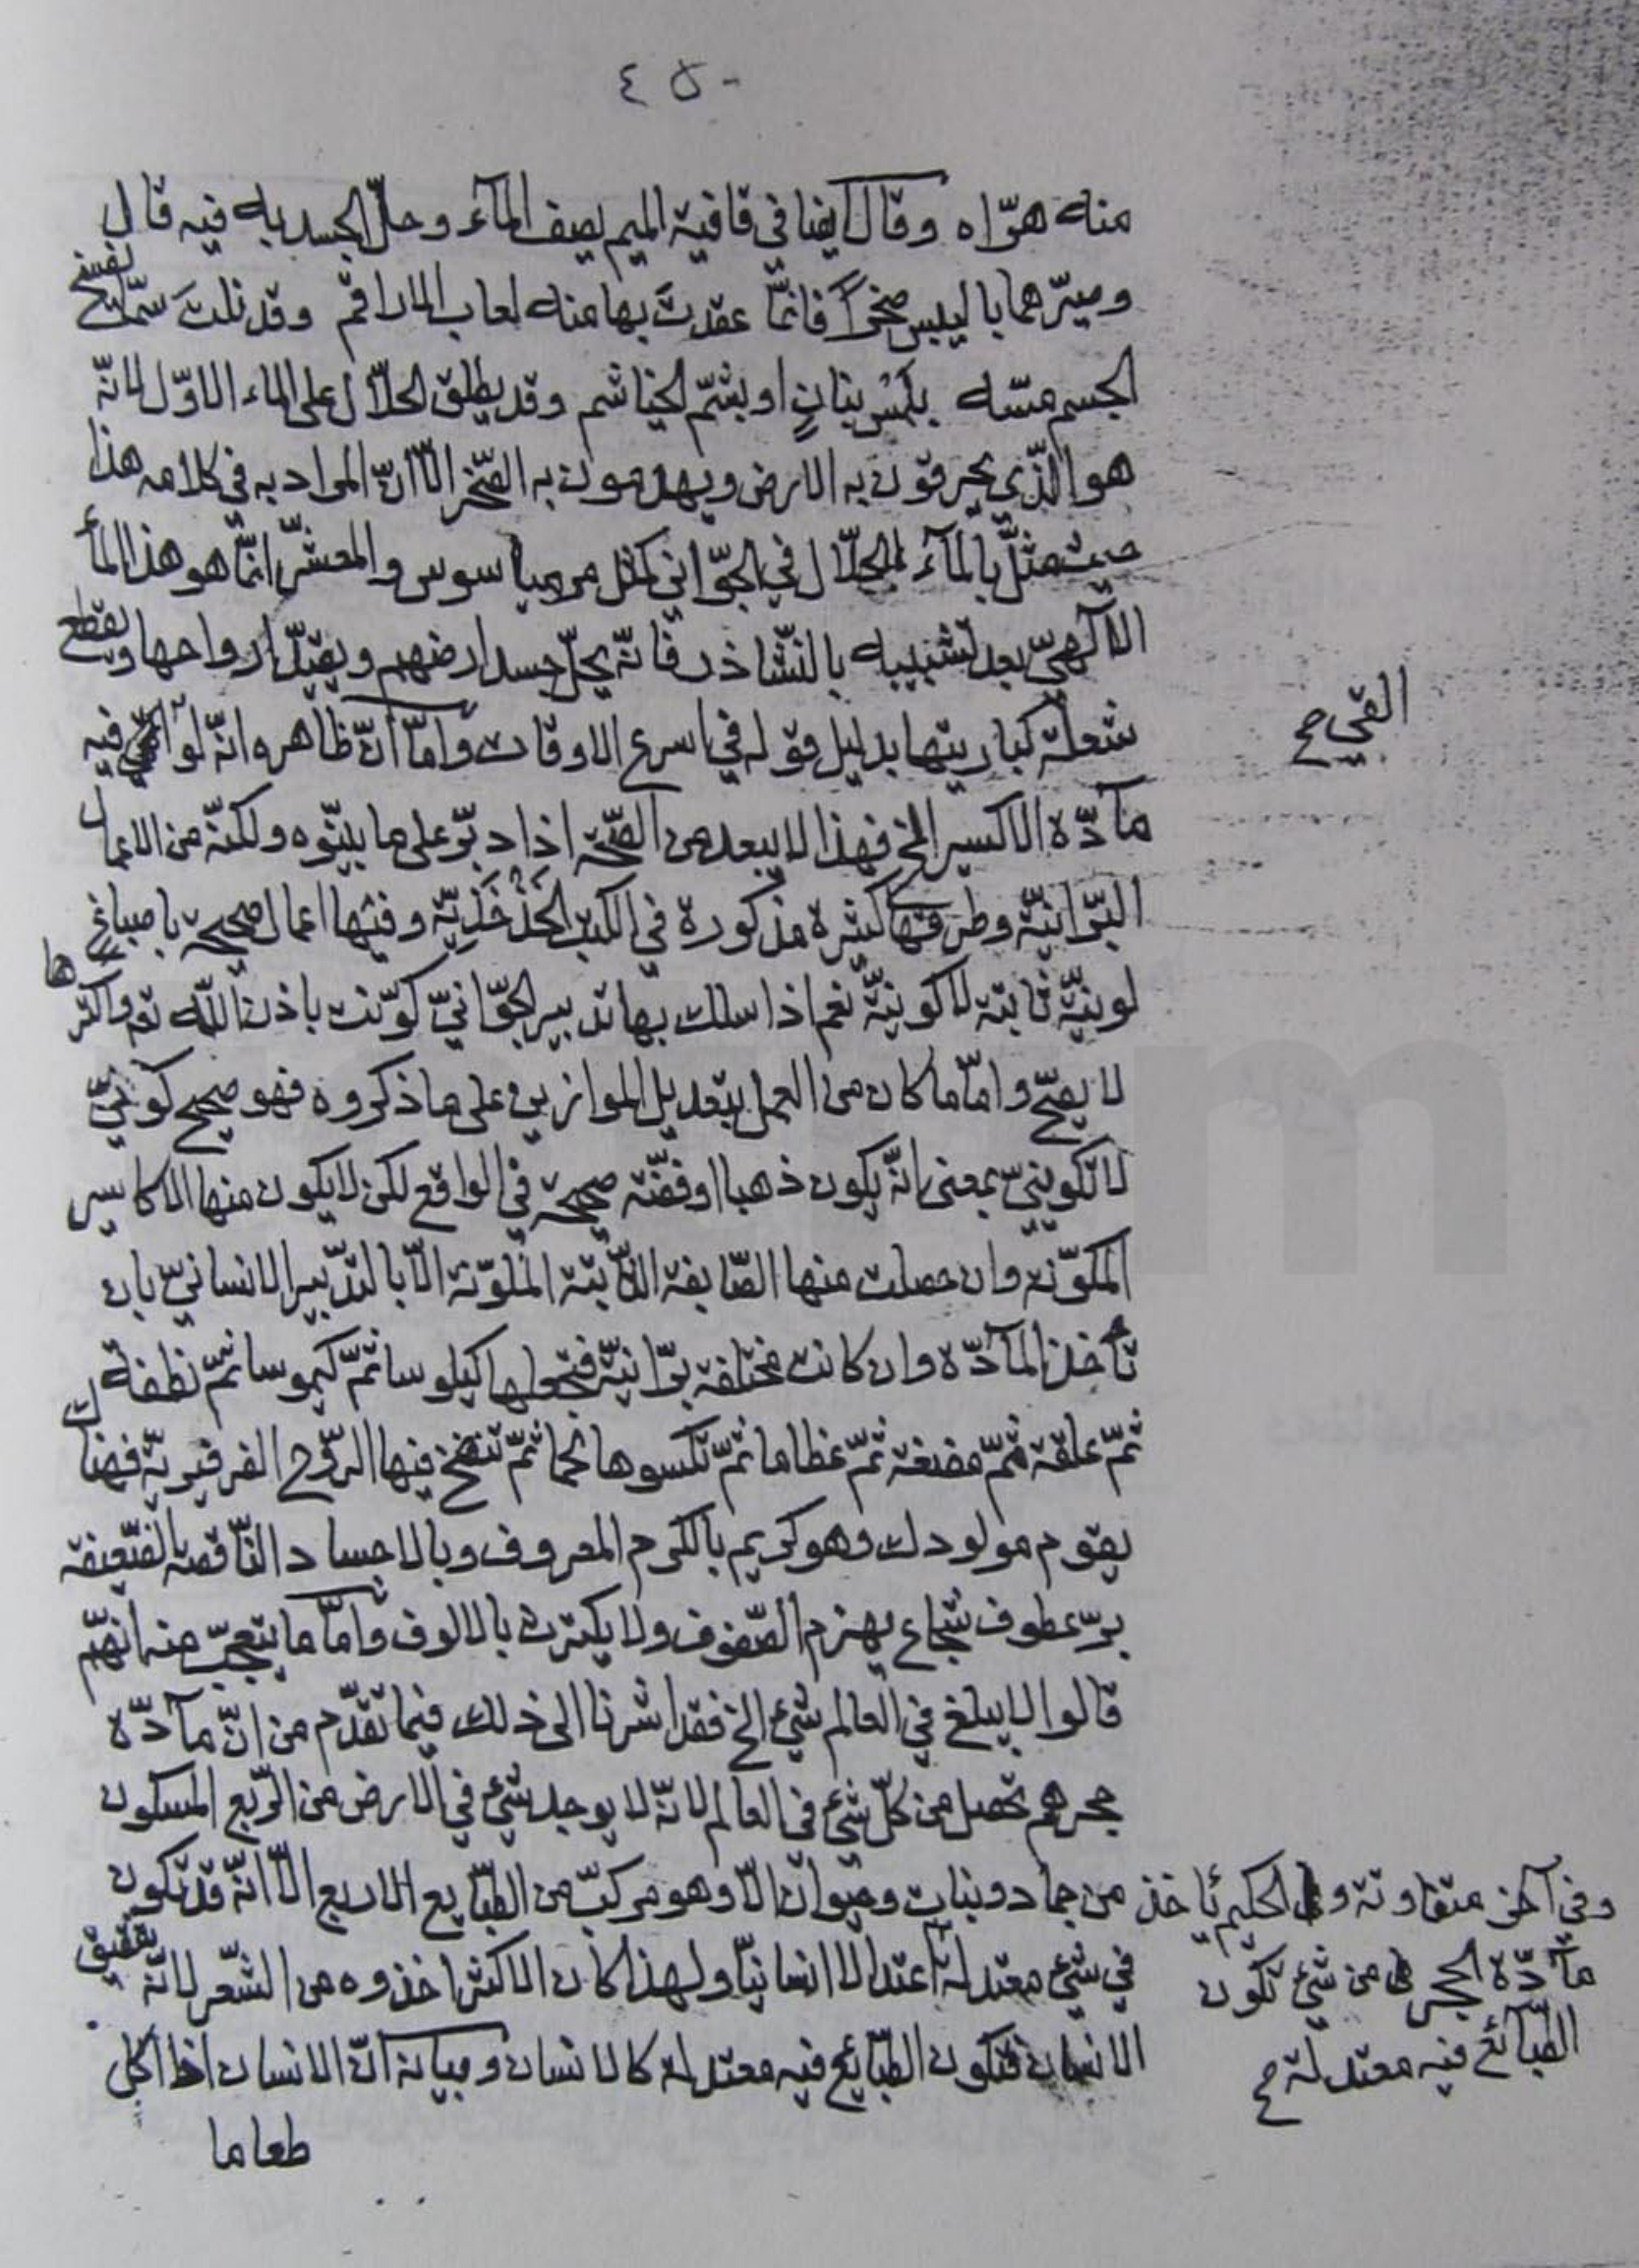 ٤٥٠
منه هوّاه وقال ايضا في قافية الميم يصف المآء وحلّ الجسد به فيه قال
وصيّرهما باليبس صخراً فانمّا عقدتَ بها منه لعاب الاراقم وقد نلتَ سمّا يفسخ
الجسم مسّه بلَمْس بنانٍ او بشمّ الخياشم وقد يطلق الحلّال على الماء الاوّل لانّه
هو الّذي يحرقون به الارض ويهدمون به الصّخر الّا انّ المراد به في كلامه هذا
حيث مثّل بالمآء الحلّال في الجوّاني كمثل مرهيا سوس والمعشّر انمّا هو هذا المآء
الالٓهيّ بعد تشبيبه بالنّشاذر فانّه يحلّ جسد ارضهم ويقيّد ارواحها ويقطع
شعلة كباريتها بدليل قوله في اسرع الاوقات وامّا انّ ظاهره انّه لو القي فيه
القي صح
مآدّة الاكسير الخ فهذا لا يبعد من الصّحّة اذا دبّر على ما بيّنوه ولكنّه من الاعمال
البرّانيّة وطرقها كثيرة مذكورة في الكتب الخَذْخَذِيّة وفيها اعمال صحيحة باصباغ
لونيّة ثابتة لا كونيّة نعم اذا سلك بها تدبير الجوّانيّ كوّنت باذن اللّه تع واكثرها
لا يصحّ وامّا ما كان من العمل بتعديل الموازين على ما ذكروه فهو صحيح كونيّ
لا تكوينيّ بمعنى انّه يكون ذهبا او فضّة صحيحة في الواقع لكن لا يكون منها الاكاسير
المكوّنة وان حصلت منها الصّابغة الثّابتة الملوّنة الّا بالتّدبير الانسانيّ بان
تأخذ المآدّة وان كانت مختلفة برّانيّة فتجعلها كيلوسا ثمّ كيموسا ثمّ نطفة
ثمّ علقة ثمّ مضغة ثمّ عظاما ثمّ تكسوها لحما ثمّ تنفخ فيها الرّوح الفرفيريّة فهناك
يقوم مولودك وهو كريم بالكرم المعروف وبالاجساد النّاقصة الضّعيفة
برّ عطوف شجاع يهزم الصّفوف ولا يكترث بالالوف وامّا ما يتعجّب منه انّهم
قالوا لا يبلغ في العالم شيء الخ فقد اشرنا الى ذلك فيما تقدّم من انّ مآدّة
حجرهم تحصل من كلّ شيء في العالم لانّه لا يوجد شيء في الارض من الرّبع المسكون
من جماد ونبات وحيوان الّا وهو مركّب من الطّبايع الاربع الّا انّه قد تكون
وفي آخر متفاوتة والحكيم يأخذ
في شيء معتدلة اعتدالا انسانيّا ولهذا كان الاكثر اخذوه من الشّعر لانّه
مآدّة الحجر من شيء تكون
الانسان فتكون الطّبايع فيه معتدلة كالانسان وبيانه انّ الانسان اذا اكل
الطّبائع فيه معتدلة صح
طعاما